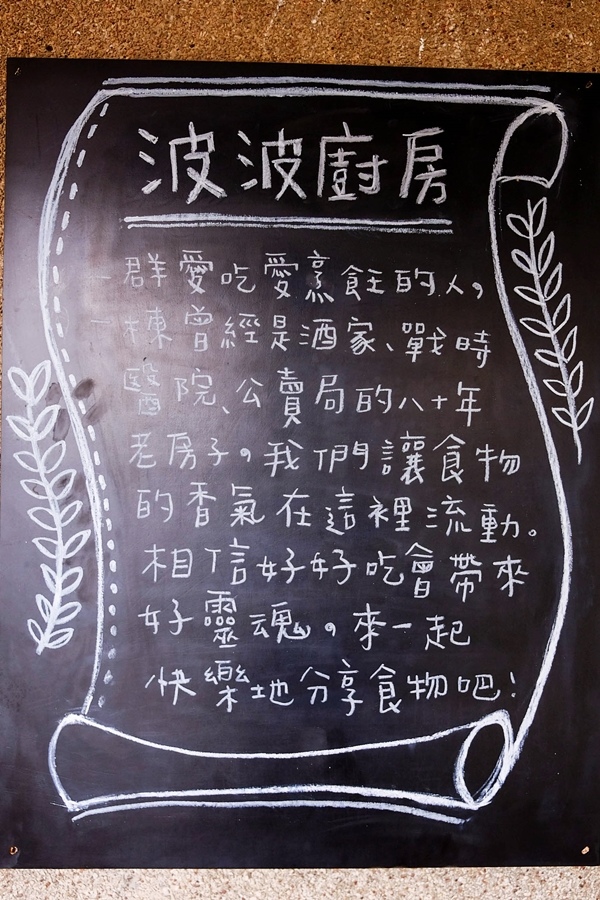 波波廚房
一群愛吃愛烹飪的人，
一棟曾經是酒家、戰時
醫院、公賣局的八十年
老房子。我們讓食物
的香氣在這裡流動。
相信好好吃會帶來
好靈魂。來一起
快樂地分享食物吧！